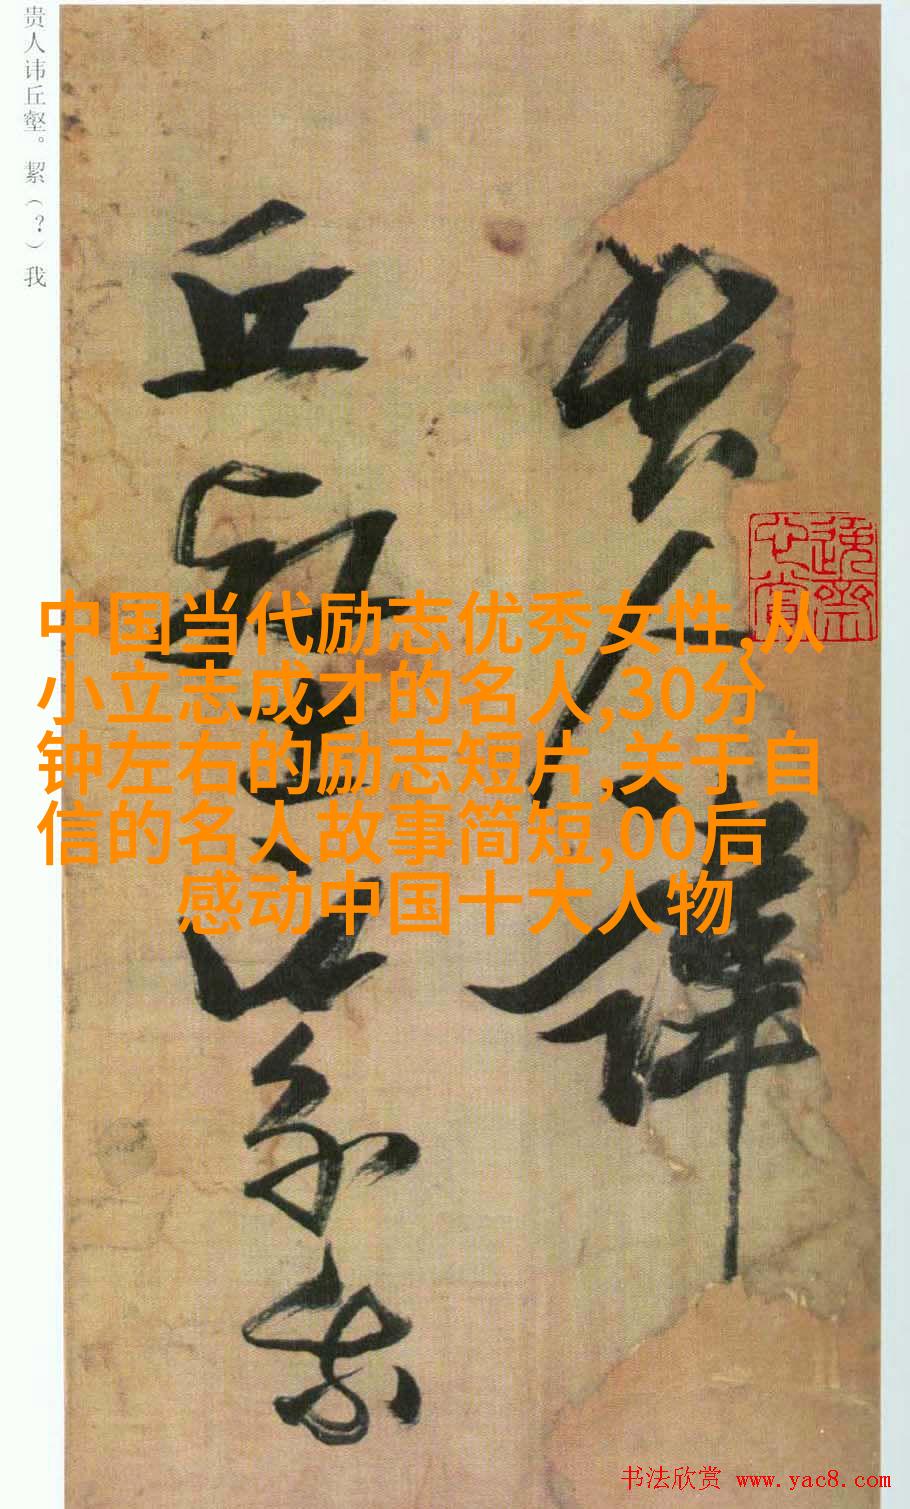 贵人讳丘壑。絜（？）我
贵人讳
丘壑絜我
中国当代励志优秀女性,从
小立志成才的名人,30分
钟左右的励志短片,关于自
信的名人故事简短,00后
感动中国十大人物
书法欣赏 www.yac8.com